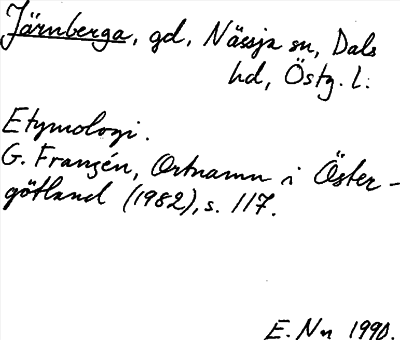 Järnberga, gd, Nässja sn, Dals
hd, Östg. l.
Etymologi.
G. Franzén, Ortnamn i Öster-
götland (1982), s. 117.
E. Nn 1990.